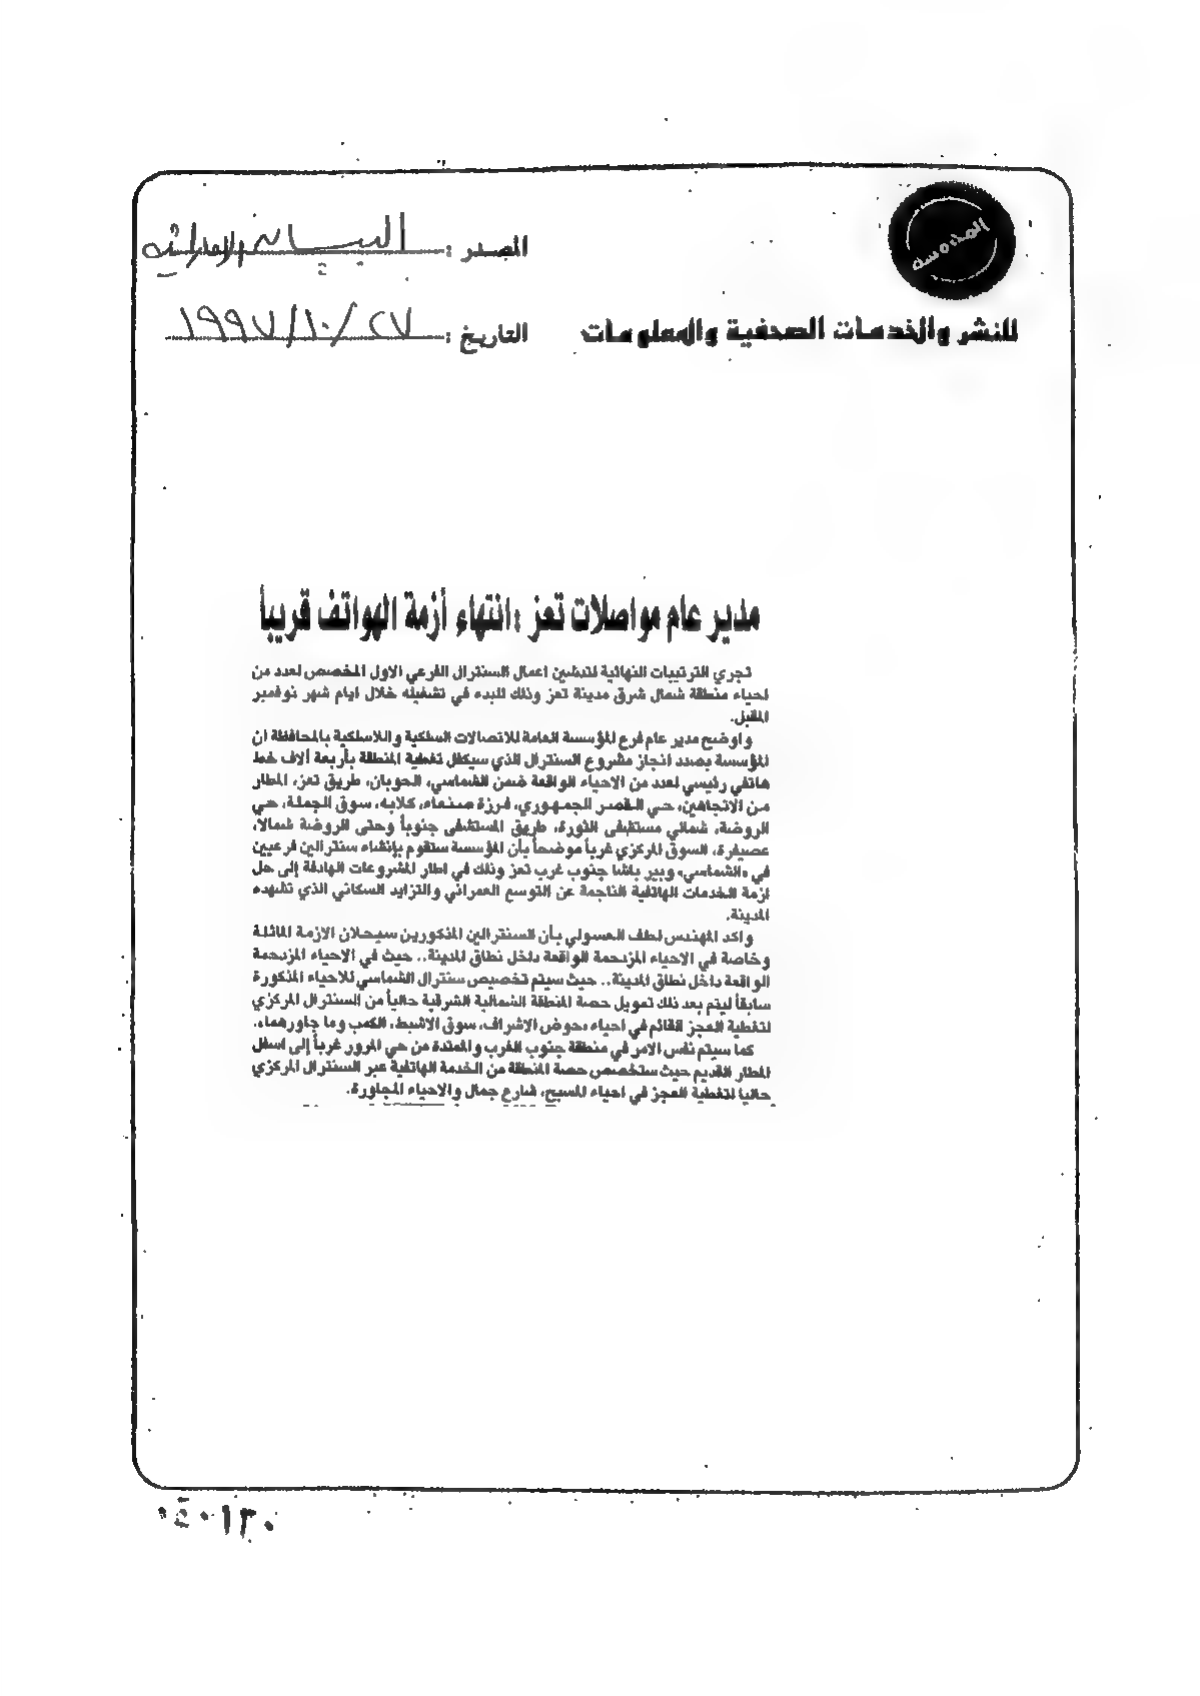 المصدر : البيان الإماراتية
للنشر والخدمات الصحفية والمعلومات
التاريخ : ٢٧/١٠/١٩٩٧
مدير عام مواصلات تعز : انتهاء أزمة الهواتف قريباً
تجري الترتيبات النهائية لتدشين اعمال السنترال الفرعي الاول المخصص لعدد من
احياء منطقة شمال شرق مدينة تعز وذلك للبدء في تشغيله خلال ايام شهر نوفمبر
المقبل.
واوضح مدير عام فرع المؤسسة العامة للاتصالات السلكية واللاسلكية بالمحافظة ان
المؤسسة بصدد انجاز مشروع السنترال الذي سيكفل تغطية المنطقة بأربعة ألاف خط
هاتفي رئيسي لعدد من الاحياء الواقعة ضمن الشماسي، الحوبان، طريق تعز، المطار
من الاتجاهين، حي القصر الجمهوري، فرزة صنعاء، كلابه، سوق الجملة، حي
الروضة، شمالي مستشفى الثورة، طريق المستشفى جنوباً وحتى الروضة شمالا،
عصيفرة، السوق المركزي غرباً موضحاً بأن المؤسسة ستقوم بإنشاء سنترالين فرعيين
في «الشماسي» وبير باشا جنوب غرب تعز وذلك في اطار المشروعات الهادفة إلى حل
ازمة الخدمات الهاتفية الناجمة عن التوسع العمراني والتزايد السكاني الذي تشهده
المدينة.
واكد المهندس لطف العسولي بأن السنترالين المذكورين سيحلان الازمة الماثلة
وخاصة في الاحياء المزدحمة الواقعة داخل نطاق المدينة.. حيث في الاحياء المزدحمة
الواقعة داخل نطاق المدينة.. حيث سيتم تخصيص سنترال الشماسي للاحياء المذكورة
سابقاً ليتم بعد ذلك تمويل حصة المنطقة الشمالية الشرقية حالياً من السنترال المركزي
لتغطية العجز القائم في احياء ،حوض الاشراف، سوق الاشبط، الكمب وما جاورهما،
كما سيتم نفس الامر في منطقة جنوب الغرب والممتدة من حي المرور غرباً إلى اسفل
المطار القديم حيث ستخصص حصة المنطقة من الخدمة الهاتفية عبر السنترال المركزي
حاليا لتغطية العجز في احياء المسبح، شارع جمال والاحياء المجاورة.